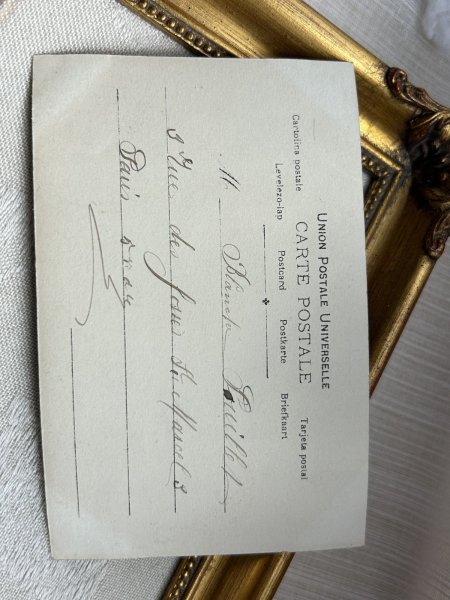 UNION POSTALE UNIVERSELLE
CARTE POSTALE
Cartolina postale Tarjeta postal
Levelezo-lap Postcard Postkarte Briefkaart
M Blanche
3 Rue des St Marcel 3
Paris